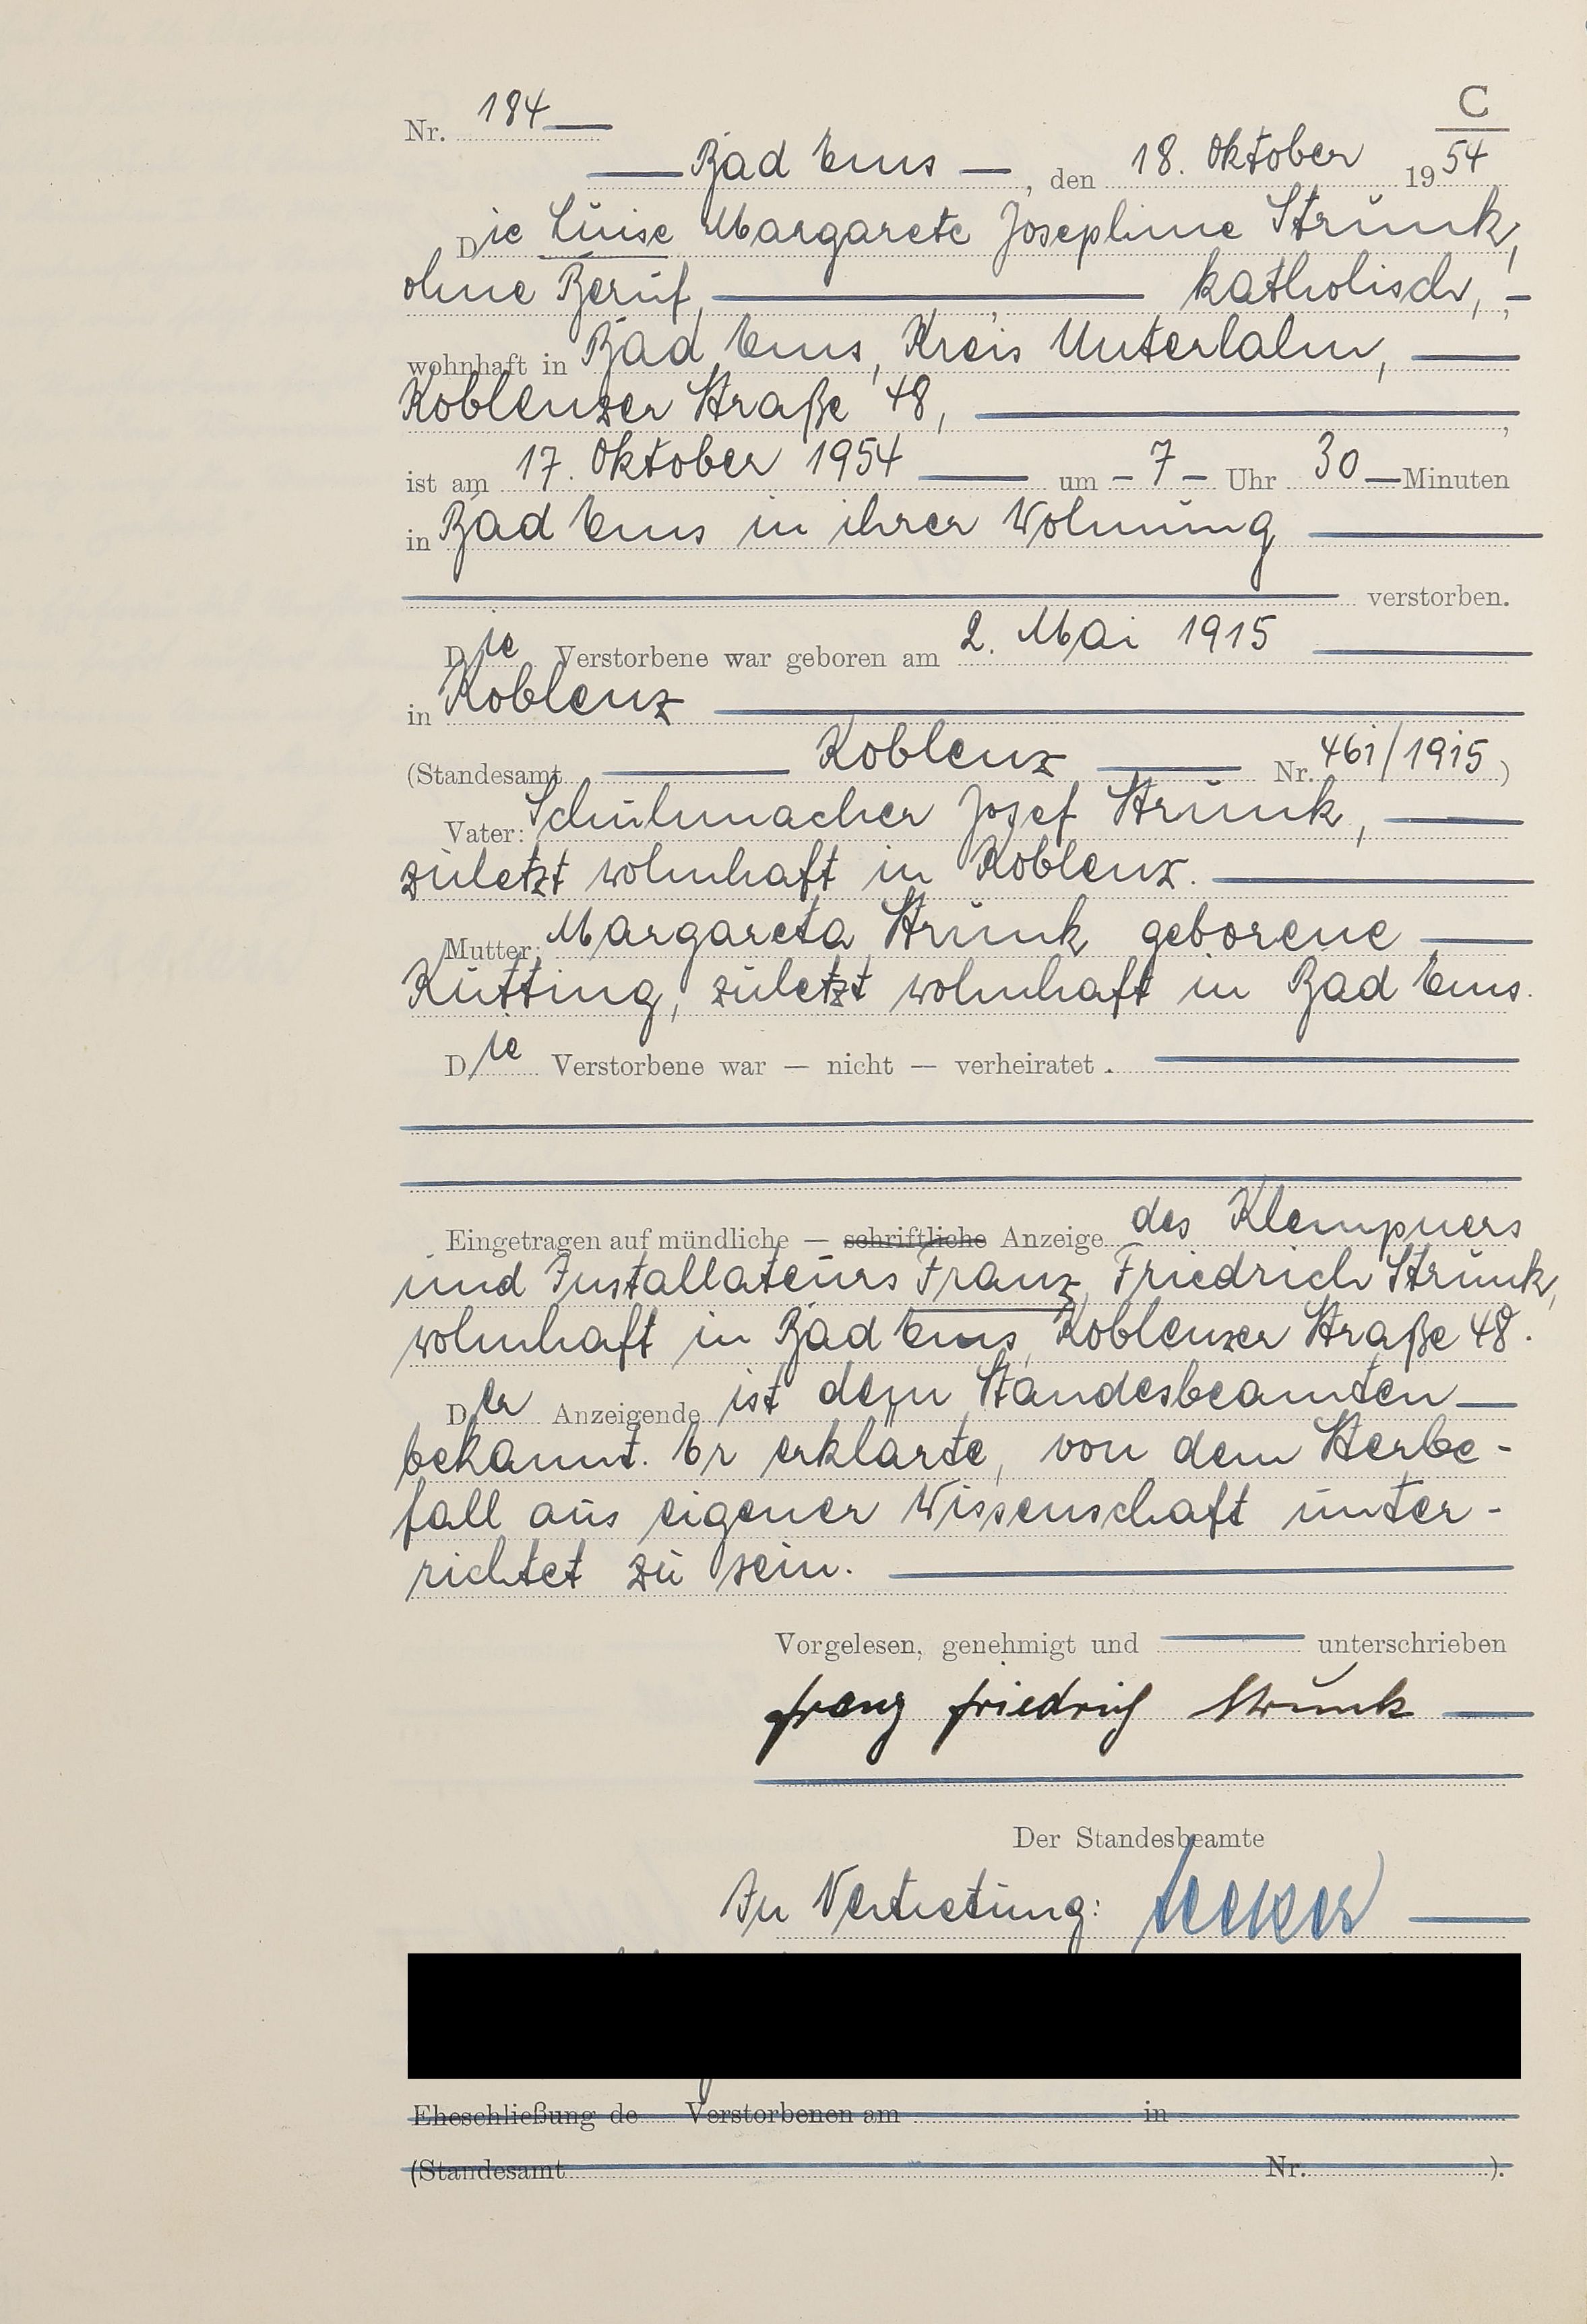 C
Nr. 184
Bad Ems, den 18. Oktober 1954
Die Luise Margarete Josephine Strunk,
ohne Beruf, katholisch,
wohnhaft in Bad Ems, Kreis Unterlahn,
Koblenzer Straße 48,
ist am 17. Oktober 1954 um - 7 - Uhr 30 Minuten
in Bad Ems in ihrer Wohnung
verstorben.
Die Verstorbene war geboren am 2. Mai 1915
in Koblenz
(Standesamt Koblenz Nr. 461/1915)
Vater: Schuhmacher Josef Strunk,
zuletzt wohnhaft in Koblenz.
Mutter: Margareta Strunk geborene
Kutting, zuletzt wohnhaft in Bad Ems.
Die Verstorbene war — nicht — verheiratet.
Eingetragen auf mündliche — schriftliche Anzeige des Klempners
und Installateurs Franz Friedrich Strunk,
wohnhaft in Bad Ems, Koblenzer Straße 48.
Der Anzeigende ist dem Standesbeamten
bekannt. Er erklärte, von dem Sterbe-
fall aus eigener Wissenschaft unter-
richtet zu sein.
Vorgelesen, genehmigt und unterschrieben
Franz Friedrich Strunk
Der Standesbeamte
In Vertretung:
Eheschließung de Verstorbenen am in
(Standesamt Nr. ).